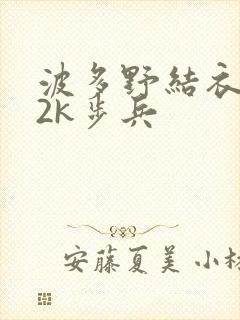 波多野結衣
2k步兵
安藤夏美 小林